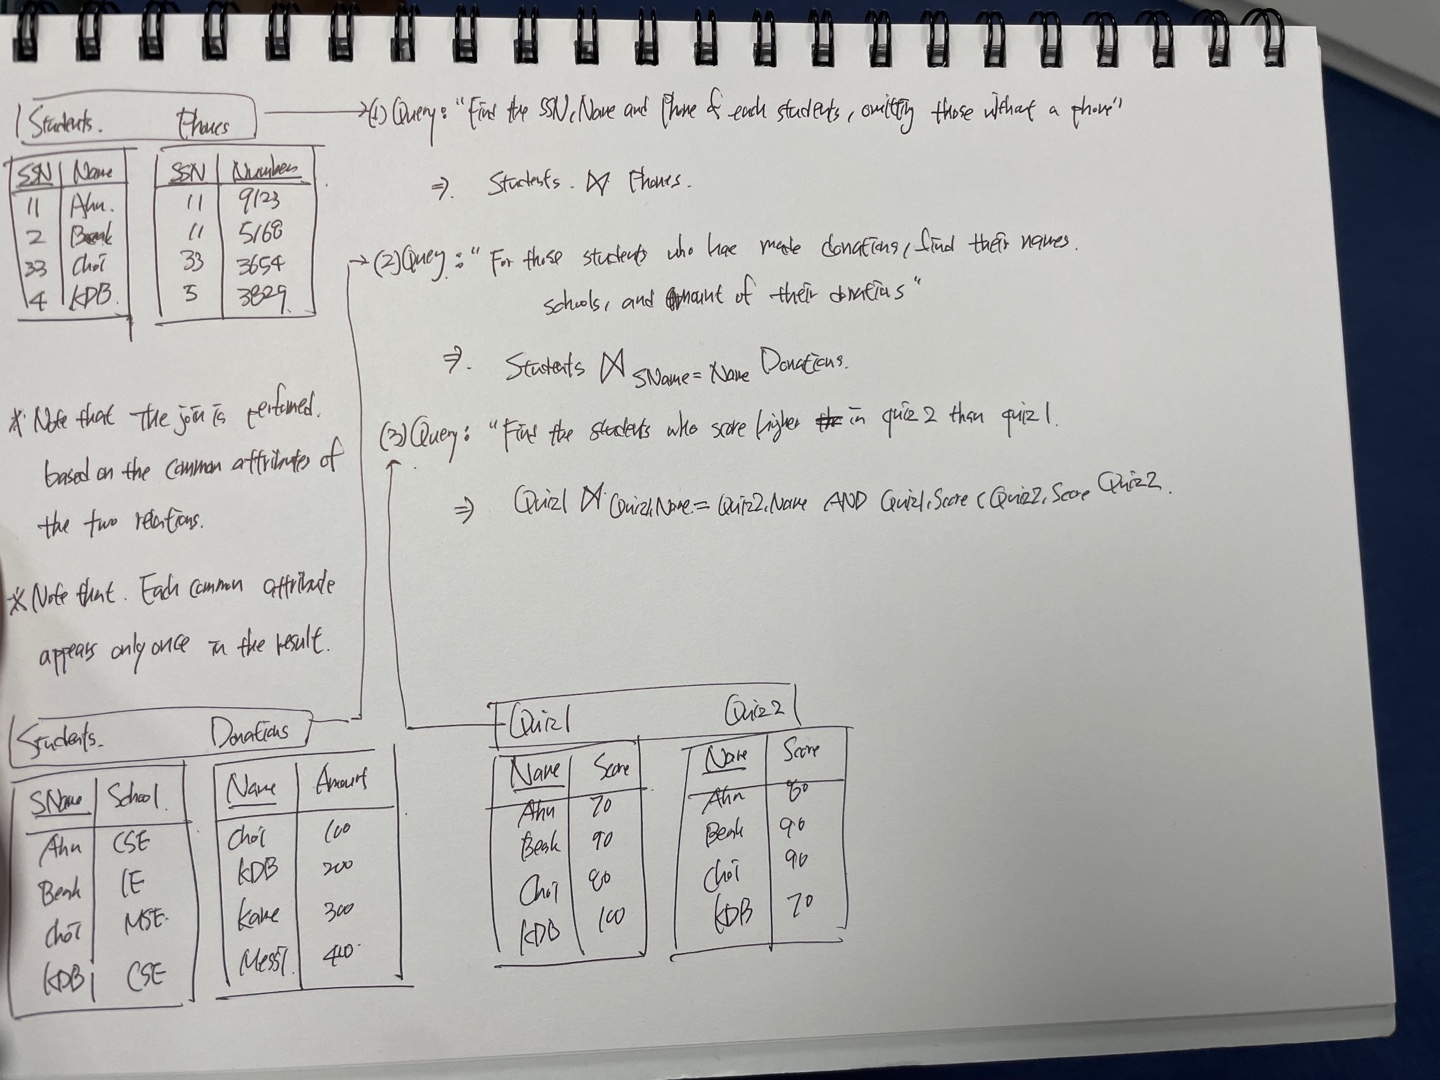 Students. Phones
SSN Name
11 Ahn.
2 Beak
33 Choi
4 KDB.
SSN Number
11 9123
11 5168
33 3654
5 3829
→(1) Query: "Find the SSN, Name and Phone of each students, omitting those without a phone"
⇒ Students. ⋈ Phones.
→(2) Query: "For those students who have made donations, find their names.
schools, and Amount of their donations"
⇒. Students ⋈ SName = Name Donations.
(3) Query: "Find the students who score higher in quiz 2 than quiz 1.
⇒ Quiz1 ⋈ Quiz1.Name = Quiz2.Name AND Quiz1.Score < Quiz2.Score Quiz2.
※ Note that the join is performed.
based on the common attributes of
the two relations.
※ Note that. Each common attribute
appears only once in the result.
Students. Donations
SName School.
Ahn CSE
Beak IE
Choi MSE.
KDB CSE
Name Amount
Choi 100
KDB 200
Kane 300
Messi. 400
Quiz1 Quiz2
Name Score
Ahn 70
Beak 90
Choi 80
KDB 100
Name Score
Ahn 80
Beak 90
Choi 90
KDB 70